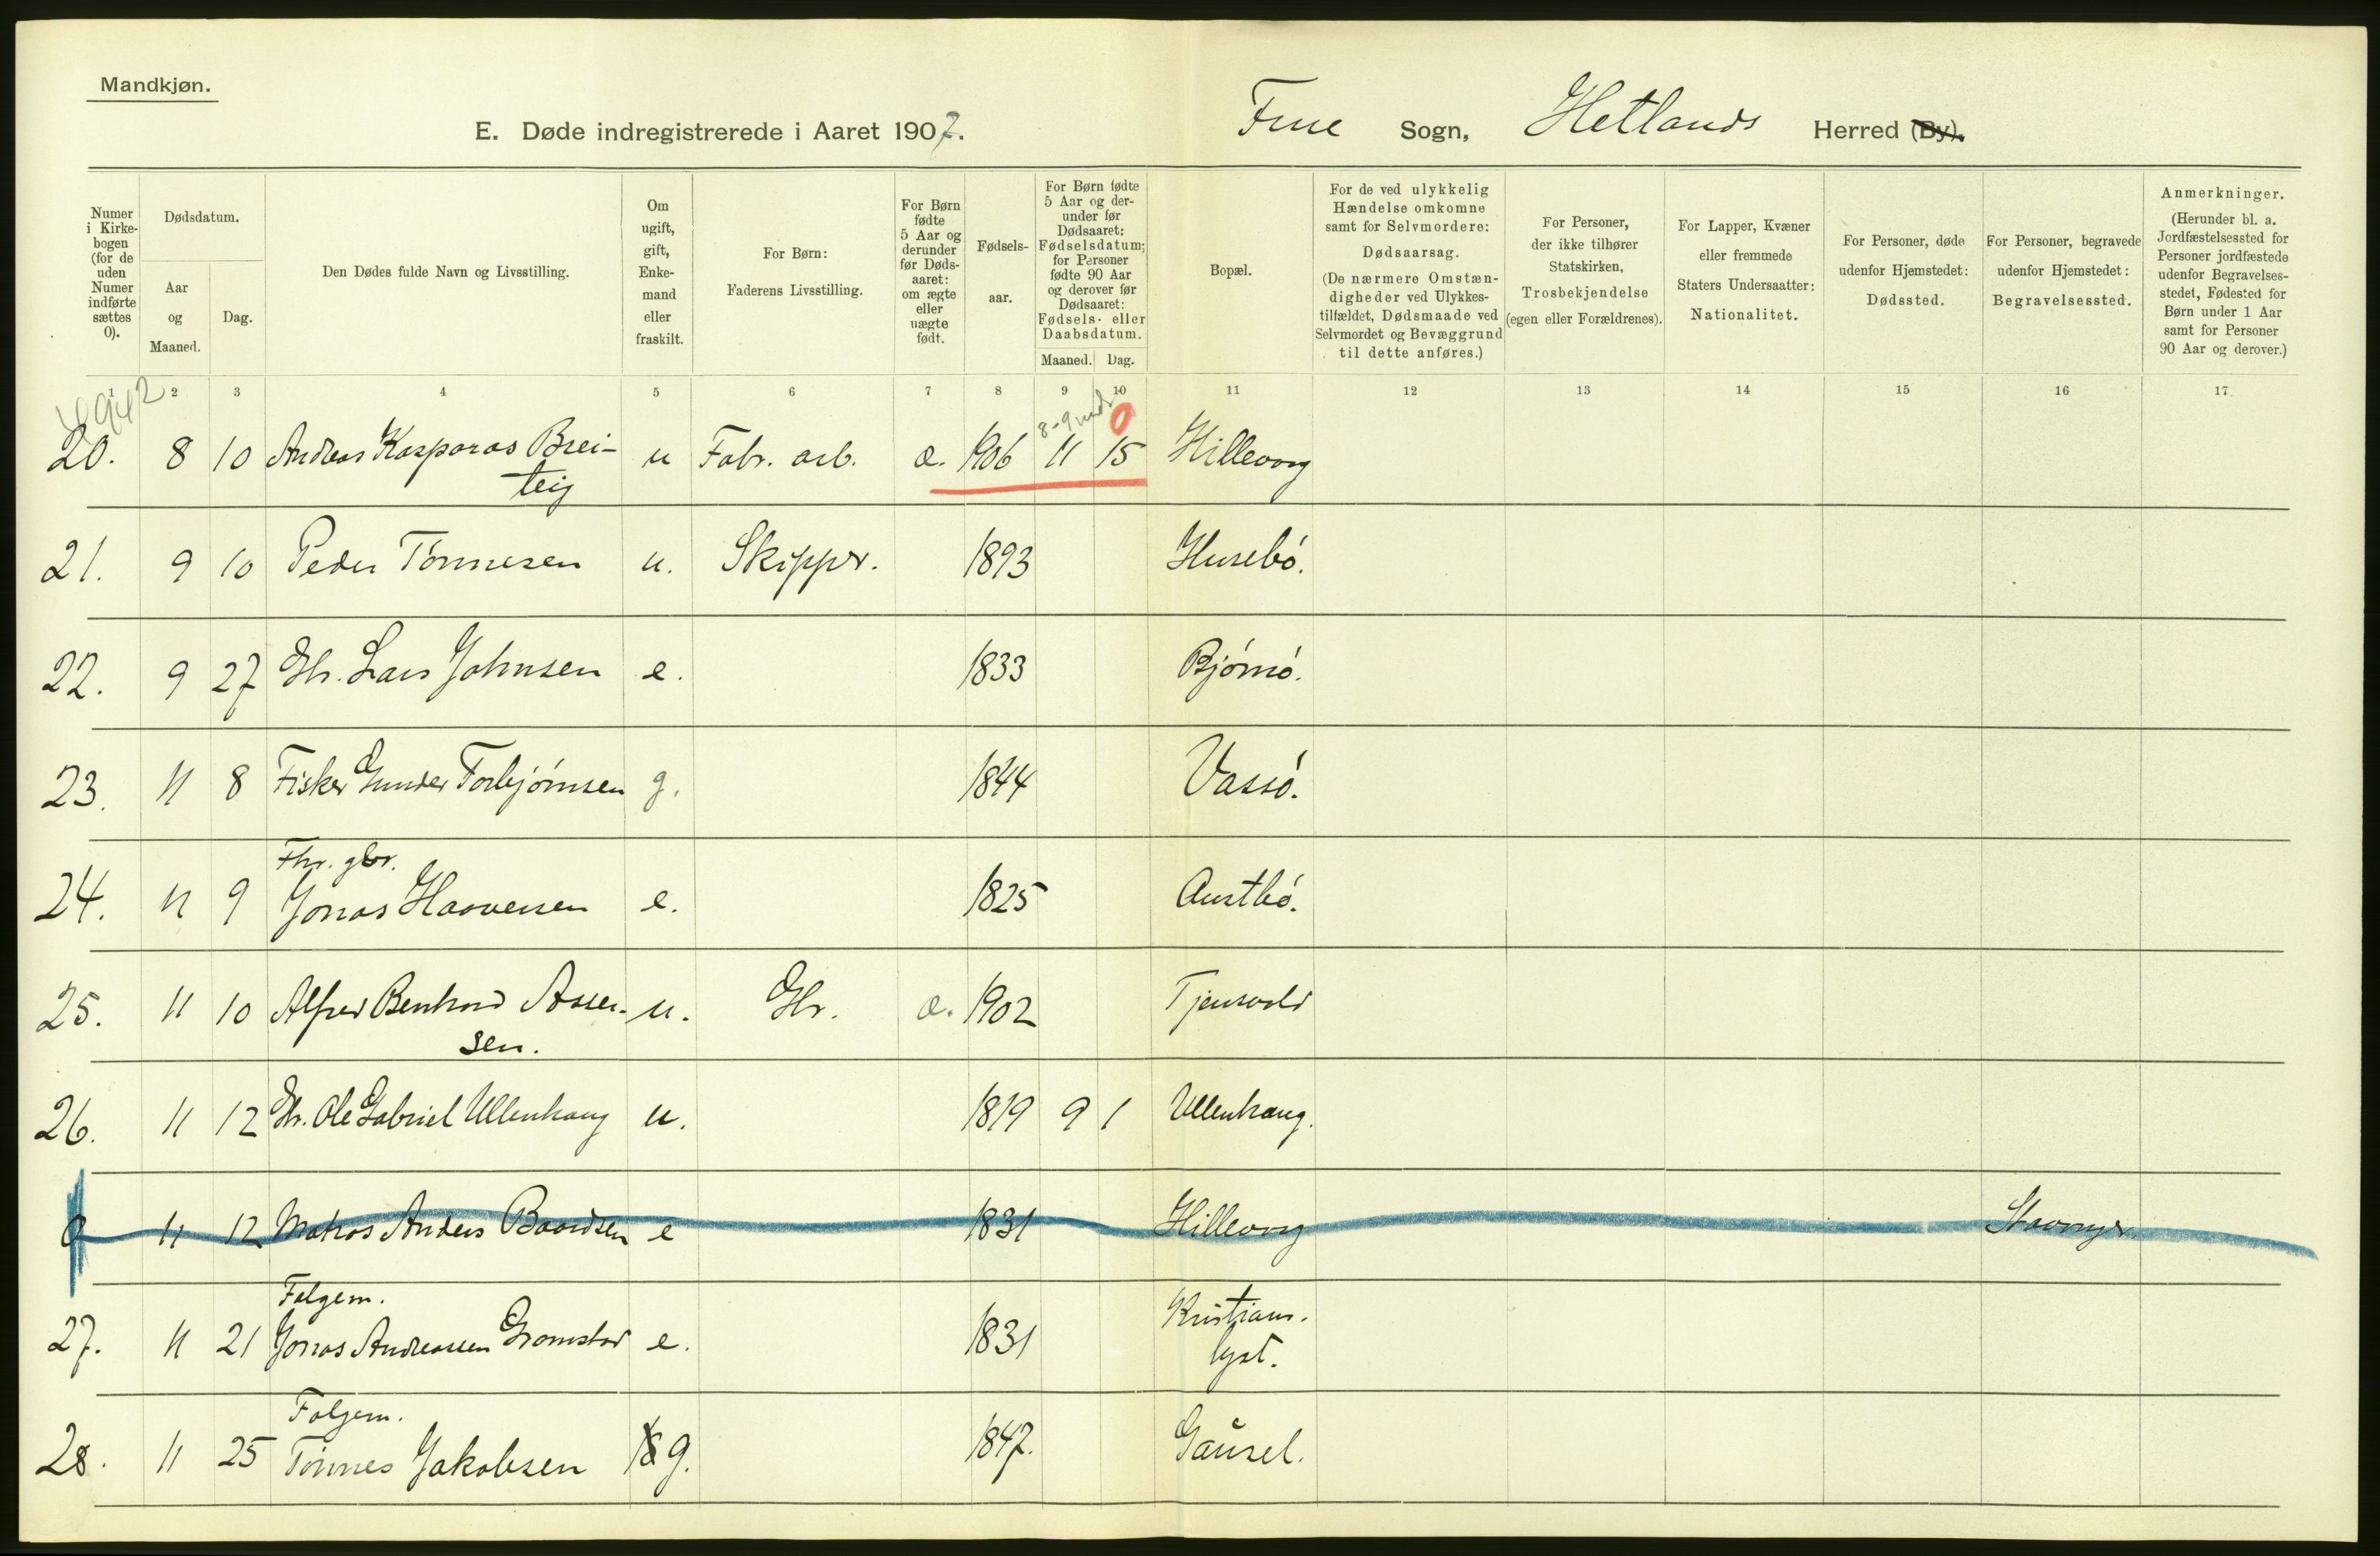 Mandkjøn.
E. Døde indregistrerede i Aaret 1907.
Frue Sogn, Hetlands Herred (By).
Numer i Kirkebogen (for de uden Numer indførte sættes 0).
Dødsdatum.
Aar og Maaned.
Dag.
Den Dødes fulde Navn og Livsstilling.
Om ugift, gift, Enkemand eller fraskilt.
For Børn: Faderens Livsstilling.
For Børn fødte 5 Aar og derunder før Dødsaaret: om ægte eller uægte født.
Fødselsaar.
For Børn fødte 5 Aar og derunder før Dødsaaret: Fødselsdatum; for Personer fødte 90 Aar og derover før Dødsaaret: Fødsels- eller Daabsdatum.
Maaned. Dag.
Bopæl.
For de ved ulykkelig Hændelse omkomne samt for Selvmordere: Dødsaarsag. (De nærmere Omstændigheder ved Ulykkestilfældet, Dødsmaade ved Selvmordet og Bevæggrund til dette anføres.)
For Personer, der ikke tilhører Statskirken, Trosbekjendelse (egen eller Forældrenes).
For Lapper, Kvæner eller fremmede Staters Undersaatter: Nationalitet.
For Personer, døde udenfor Hjemstedet: Dødssted.
For Personer, begravede udenfor Hjemstedet: Begravelsessted.
Anmerkninger. (Herunder bl. a. Jordfæstelsessted for Personer jordfæstede udenfor Begravelsesstedet, Fødested for Børn under 1 Aar samt for Personer 90 Aar og derover.)
1 2 3 4 5 6 7 8 9 10 11 12 13 14 15 16 17
8-9 mdr 0
20. 8 10 Andreas Kasparas Brei- u Fabr. arb. æ. 1906 11 15 Hillevaag
teig
21. 9 10 Peder Tønnesen u. Skippr. 1893 Husebø.
22. 9 27 Gbr. Lars Johnsen e. 1833 Bjørnø.
23. 11 8 Fisker Gunder Torbjørnsen g. 1844 Vassø.
Fhv. gbr.
24. 11 9 Jonas Haavensen e. 1825 Austbø.
25. 11 10 Alfred Bernhard Assser- u. Gbr. æ. 1902 Tjensvold
sen.
26. 11 12 Gbr. Ole Gabriel Ullenhaug u. 1819 9 1 Ullenhaug.
0 11 12 Matros Anders Baardsen e 1831 Hillevaag Stavanger.
Følgem.
27. 11 21 Jonas Andreassen Gramstad e. 1831 Kristians-
lyst.
Følgem.
28. 11 25 Tønnes Jakobsen g. 1847. Gausel.